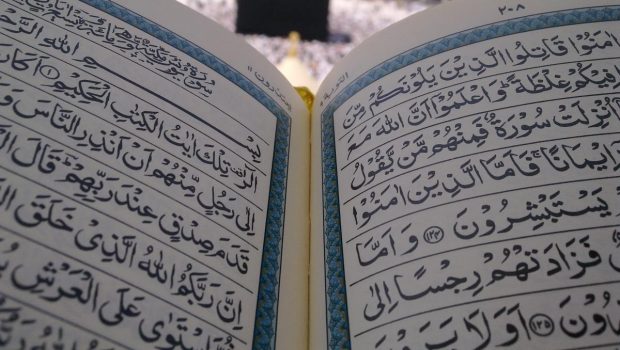 ٢٠٨
التوبة ٩
اٰمَنُوْا قَاتِلُوا الَّذِيْنَ يَلُوْنَكُمْ مِّنَ
فِيْكُمْ غِلْظَةً ؕ وَاعْلَمُوْۤا اَنَّ اللّٰهَ مَعَ
اُنْزِلَتْ سُوْرَةٌ فَمِنْهُمْ مَّنْ يَّقُوْلُ
اِيْمَانًا ۚ فَاَمَّا الَّذِيْنَ اٰمَنُوْا
يَسْتَبْشِرُوْنَ ﴿١٢٤﴾ وَ اَمَّا
فَزَادَتْهُمْ رِجْسًا اِلٰى
﴿١٢٥﴾ اَوَلَا يَرَوْنَ
يعتذرون ١١
بِسْمِ اللّٰهِ الرَّحْ
الٓرٰ تِلْكَ اٰيٰتُ الْكِتٰبِ الْحَكِيْمِ ﴿١﴾ اَكَانَ
اِلٰى رَجُلٍ مِّنْهُمْ اَنْ اَنْذِرِ النَّاسَ وَ
قَدَمَ صِدْقٍ عِنْدَ رَبِّهِمْ ؕ قَالَ
اِنَّ رَبَّكُمُ اللّٰهُ الَّذِىْ خَلَقَ
ثُمَّ اسْتَوٰى عَلَى الْعَرْشِ